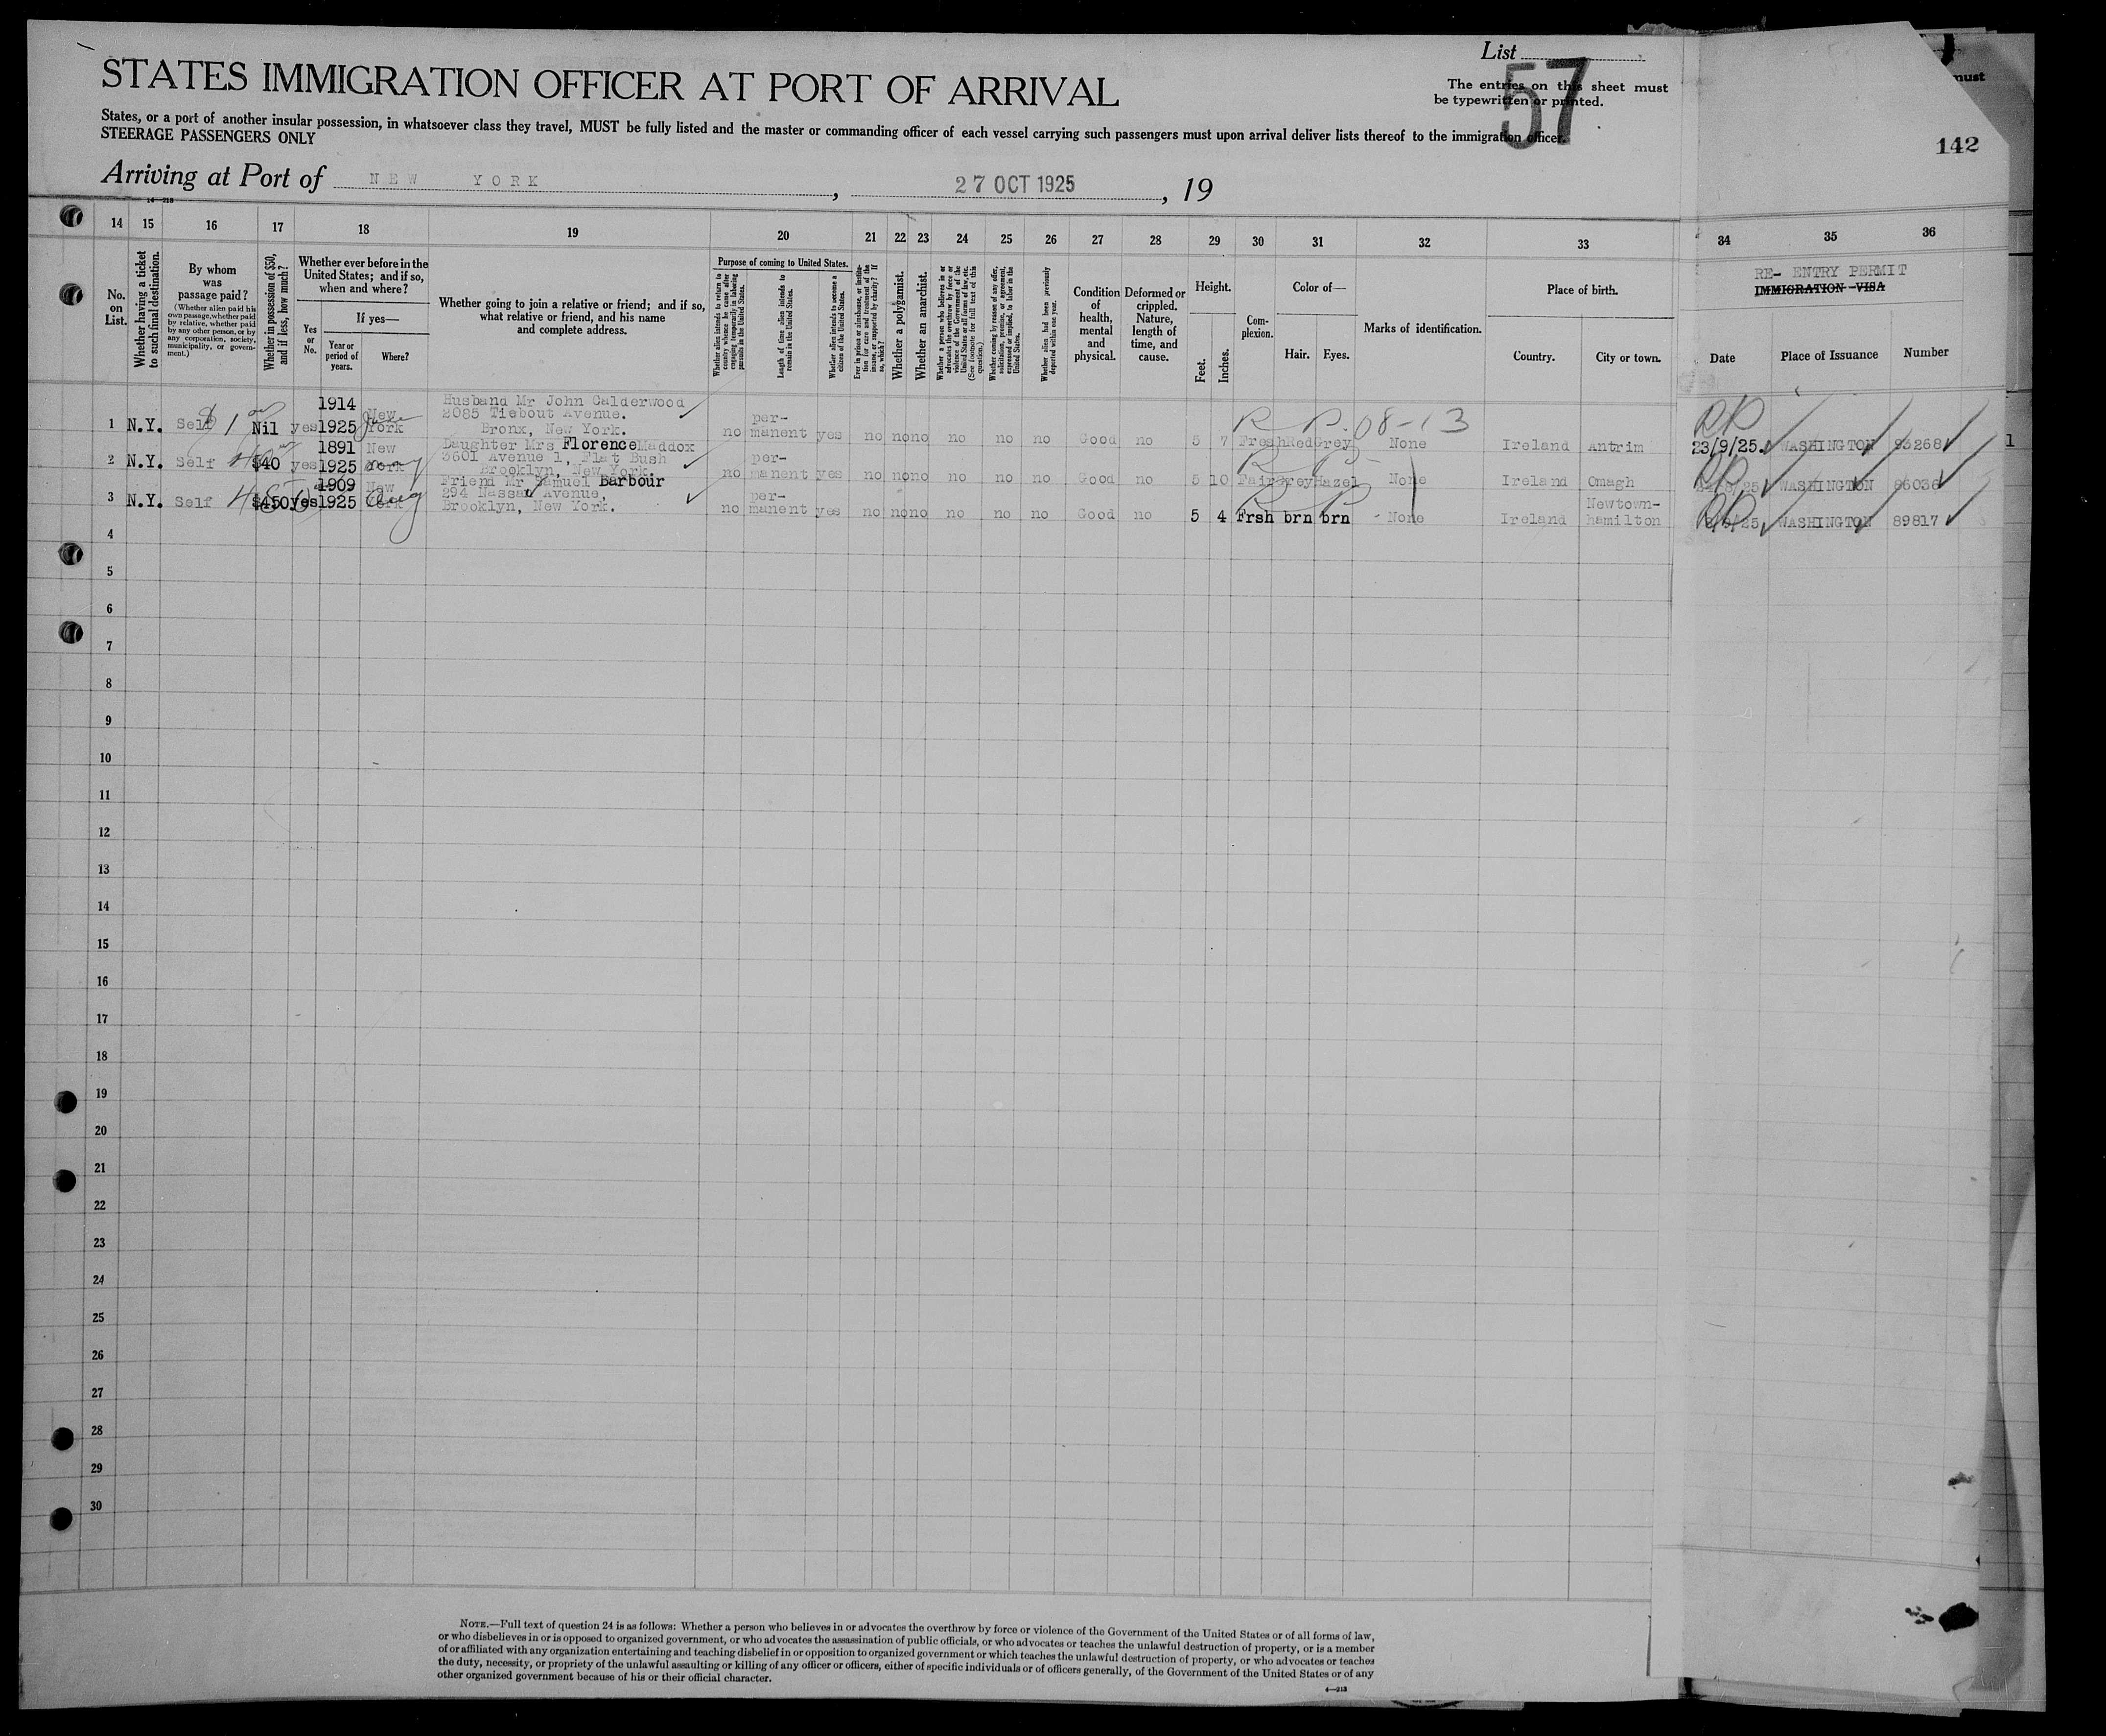 List
57
STATES IMMIGRATION OFFICER AT PORT OF ARRIVAL
The entries on this sheet must
be typewritten or printed.
must
States, or a port of another insular possession, in whatsoever class they travel, MUST be fully listed and the master or commanding officer of each vessel carrying such passengers must upon arrival deliver lists thereof to the immigration officer.
STEERAGE PASSENGERS ONLY
142
Arriving at Port of NEW YORK, 27 OCT 1925, 19
14 15 16 17 18 19 20 21 22 23 24 25 26 27 28 29 30 31 32 33 34 35 36
No. on List.
Whether having a ticket to such final destination.
By whom was passage paid?
(Whether alien paid his own passage, whether paid by relative, whether paid by any other person, or by any corporation, society, municipality, or government.)
Whether in possession of $50, and if less, how much?
Whether ever before in the United States; and if so, when and where?
Yes or No.
If yes—
Year or period of years.
Where?
Whether going to join a relative or friend; and if so, what relative or friend, and his name and complete address.
Purpose of coming to United States.
Whether alien intends to return to country whence he came after engaging temporarily in laboring pursuits in the United States.
Length of time alien intends to remain in the United States.
Whether alien intends to become a citizen of the United States.
Ever in prison or almshouse, or institution for care and treatment of the insane, or supported by charity? If so, which?
Whether a polygamist.
Whether an anarchist.
Whether a person who believes in or advocates the overthrow by force or violence of the Government of the United States or all forms of law, etc. (See footnote for full text of this question.)
Whether coming by reason of any offer, solicitation, promise, or agreement, expressed or implied, to labor in the United States.
Whether alien had been previously deported within one year.
Condition of health, mental and physical.
Deformed or crippled. Nature, length of time, and cause.
Height.
Feet. Inches.
Complexion.
Color of—
Hair. Eyes.
Marks of identification.
Place of birth.
Country. City or town.
RE- ENTRY PERMIT
IMMIGRATION VISA
Date Place of Issuance Number
1 N.Y. Self $1 Nil yes 1914 1925 New York June Husband Mr John Calderwood
2085 Tiebout Avenue.
Bronx, New York. no permanent yes no no no no no no Good no 5 7 Fresh Red Grey None Ireland Antrim 23/9/25. WASHINGTON 93268 1
R P. 08-13
RP
2 N.Y. Self $40 yes 1891 1925 New York Daughter Mrs Florence Maddox
3601 Avenue 1, Flat Bush
Brooklyn, New York. no permanent yes no no no no no no Good no 5 10 Fair grey Hazel None Ireland Omagh WASHINGTON
R P
RP
3 N.Y. Self $450 yes 1909 1925 New York Aug Friend Mr Samuel Barbour
294 Nassau Avenue,
Brooklyn, New York. no permanent yes no no no no no no Good no 5 4 Frsh brn brn None Ireland Newtown-
hamilton WASHINGTON 89817
R P
RP
4
5
6
7
8
9
10
11
12
13
14
15
16
17
18
19
20
21
22
23
24
25
26
27
28
29
30
NOTE.—Full text of question 24 is as follows: Whether a person who believes in or advocates the overthrow by force or violence of the Government of the United States or of all forms of law,
or who disbelieves in or is opposed to organized government, or who advocates the assassination of public officials, or who advocates or teaches the unlawful destruction of property, or is a member
of or affiliated with any organization entertaining and teaching disbelief in or opposition to organized government or which teaches the unlawful destruction of property, or who advocates or teaches
the duty, necessity, or propriety of the unlawful assaulting or killing of any officer or officers, either of specific individuals or of officers generally, of the Government of the United States or of any
other organized government because of his or their official character.